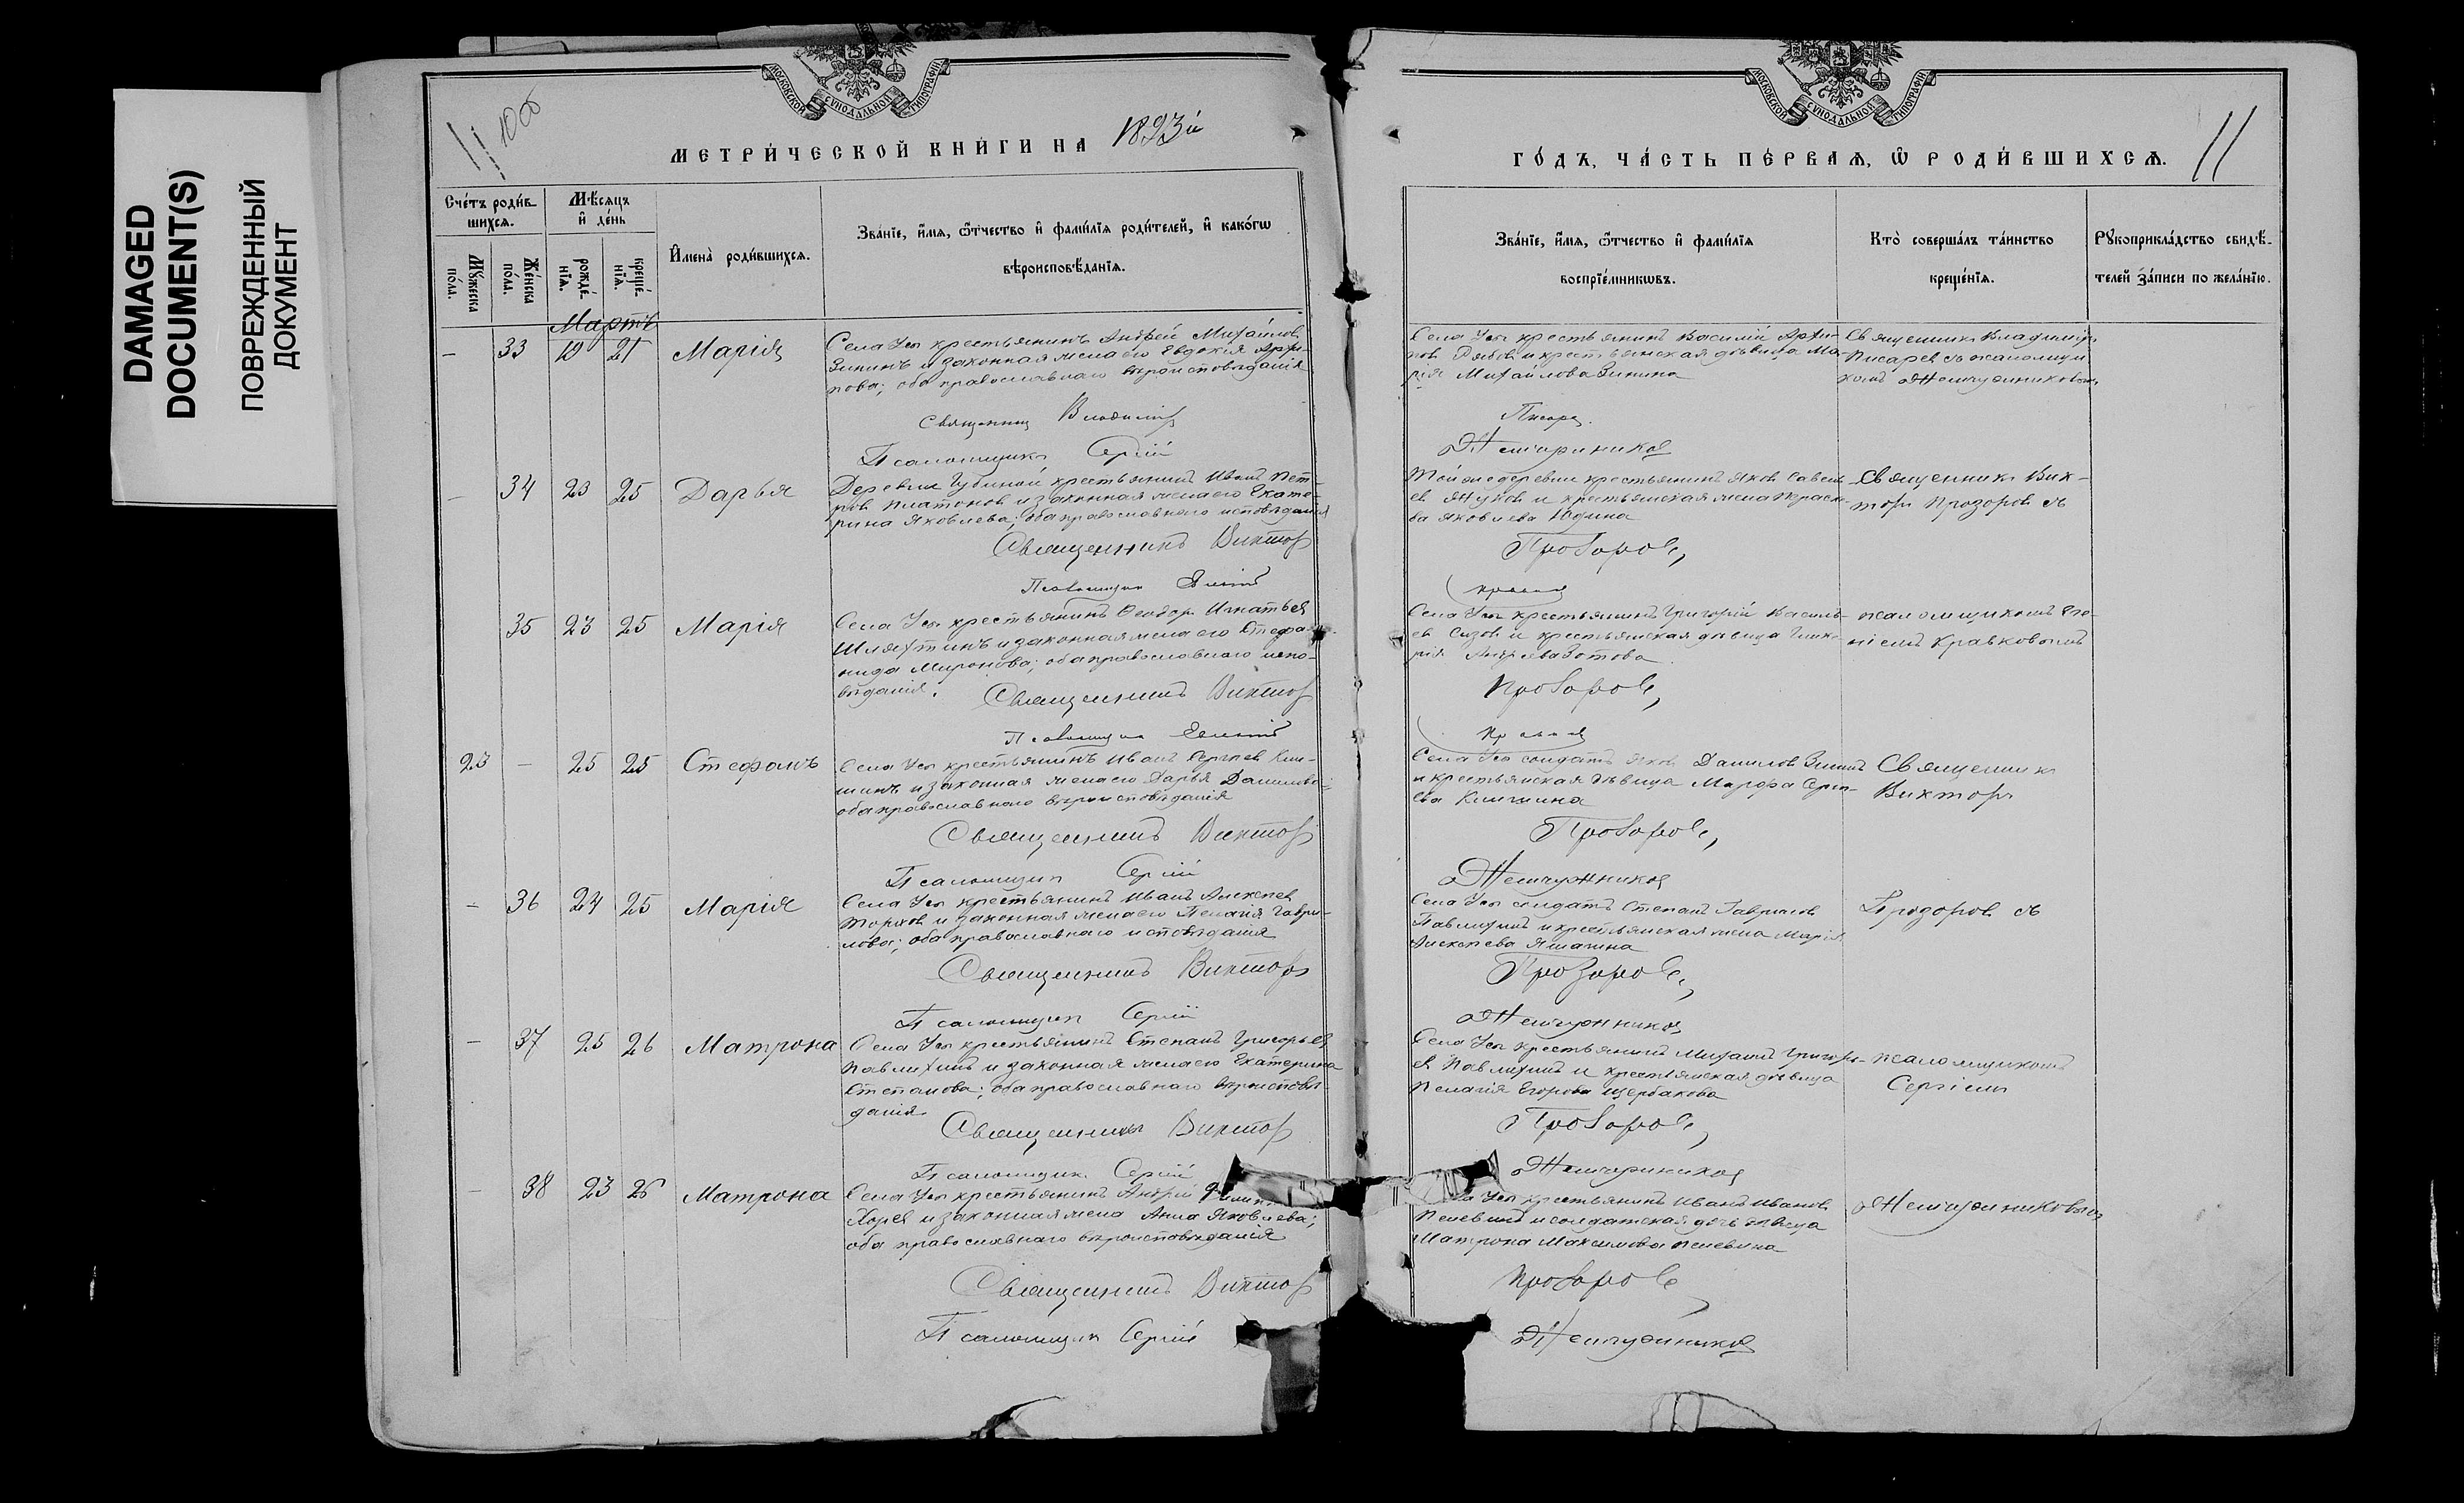 DAMAGED
DOCUMENT(S)
ПОВРЕЖДЕННЫЙ
ДОКУМЕНТ
МОСКОВСКОЙ СѴНОДАЛЬНОЙ ТИПОГРАФІИ
МЕТРИ́ЧЕСКОЙ КНИ́ГИ НА 1893й
Сче́тъ роди́в
шихся.
Мѣ́сяцъ
и҆ де́нь
Мꙋ́жеска
по́ла.
Же́нска
по́ла.
рожде́-
нїѧ.
креще́-
нїѧ.
И҆мена̀ роди́вшихсѧ.
Зва́нїе, и҆́мѧ, ѿтчество и҆ фами́лїѧ роди́телей, и҆ како́гѡ
вѣроисповѣ́данїѧ.
Мартъ
33 19 21 Марія
Села Усы крестьянинъ Андрей Михайловъ
Зининъ и законная жена его Евдокія Архи-
пова; оба православнаго вѣроисповѣданія
Священникъ Владиміръ
Псаломщикъ Сергій
34 23 25 Дарья
Деревни Губиной крестьянинъ Иванъ Пет-
ровъ Платоновъ и законная жена его Екате-
рина Яковлева; оба православнаго исповѣданія
Священникъ Викторъ
Псаломщикъ
35 23 25 Марія
Села Усы крестьянинъ Ѳеодоръ Игнатьев
Шляхтинъ и законная жена его Стефа-
нида Миронова; оба православнаго испо-
вѣданія.
Священникъ Викторъ
Псаломщикъ
23 – 25 25 Стефанъ
Села Усы крестьянинъ Иванъ Сергѣев Ким-
шинъ и законная жена его Дарья Данилова;
оба православнаго вѣроисповѣданія
Священникъ Викторъ
Псаломщикъ Сергій
– 36 24 25 Марія
Села Усы крестьянинъ Иванъ Алексѣев
и законная жена его Пелагія Гаври-
лова; оба православнаго исповѣданія
Священникъ Викторъ
Псаломщикъ Сергій
– 37 25 26 Матрона
Села Усы крестьянинъ Степанъ Григорьев
Павлихинъ и законная жена его Екатерина
Степанова; оба православнаго вѣроисповѣ
данія
Священникъ Викторъ
Псаломщикъ Сергій
– 38 23 26 Матрона
Села Усы крестьянинъ Андрей
Хорев и законная жена Анна Яковлева;
оба православнаго вѣроисповѣданія
Священникъ Викторъ
Псаломщикъ Сергій
МОСКОВСКОЙ СѴНОДАЛЬНОЙ ТИПОГРАФІИ
ГО́ДЪ, ЧА́СТЬ ПЕ́РВАѦ, Ѡ҆ РОДИ́ВШИХСѦ.
11
Зва́нїе, и҆́мѧ, ѿтчество и҆ фами́лїѧ
воспрїе́мникѡвъ.
Кто̀ соверша́лъ та́инство
креще́нїѧ.
Рꙋкоприкла́дство свидѣ́-
телей за́писи по жела́нїю.
Села Усы крестьянинъ Василій Архи-
пов и крестьянская дѣвица Ма-
рія Михайлова Зинина
Священникъ Владиміръ
Писарев съ псаломщи
комъ Жемчужниковымъ
Писарев
Жемчужников
Той же деревни крестьянинъ Яков Савель-
ев Жуков и крестьянская жена Параске-
ва Яковлева Юдина
Священникъ Вик-
торъ Прозоров съ
Прозоров
Села Усы крестьянинъ Григорій Василь-
ев Сизов и крестьянская дѣвица
Зотова
псаломщикомъ Ев-
Кравковымъ
Прозоров
Села Усы солдатъ Яков Данилов Зининъ
и крестьянская дѣвица Марфа Сергѣ-
ева Кимшина
Священникъ
Викторъ
Прозоров
Жемчужников
Села Усы солдатъ Степанъ Гаврилов
Павлихинъ и крестьянская жена Марія
Алексѣева
Прозоров съ
Прозоров
Жемчужников
Села Усы крестьянинъ Михаилъ Григорь-
ев Павлихинъ и крестьянская дѣвица
Пелагія Егорова Щербакова
псаломщикомъ
Сергіемъ
Прозоров
Жемчужников
Усы крестьянинъ Иванъ Иванов
Пелевинъ и солдатская дочь дѣвица
Матрона Максимова Пелевина
Жемчужниковымъ
Прозоров
Жемчужников